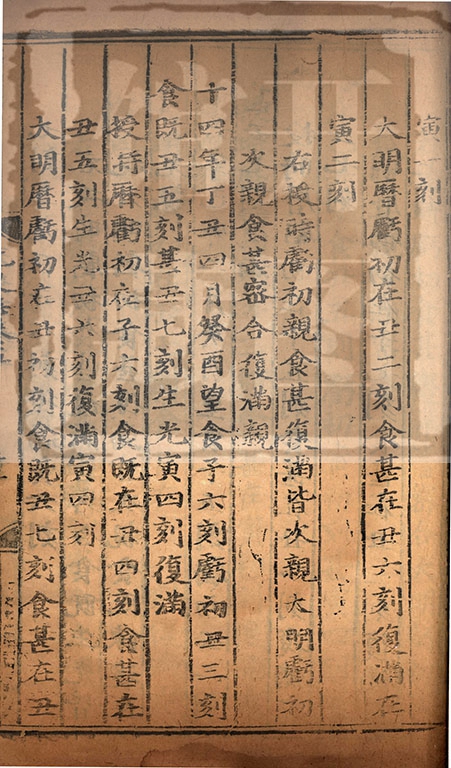 寅一刻
大明曆虧初在丑二刻食甚在丑六刻復滿在
寅二刻
右授時虧初親食甚復滿皆次親大明虧初
次親食甚密合復滿親
十四年丁丑四月癸酉望食子六刻虧初丑三刻
食既丑五刻甚丑七刻生光寅四刻復滿
授時曆虧初在子六刻食既在丑四刻食甚在
丑五刻生光丑六刻復滿寅四刻
大明曆虧初在丑初刻食既丑七刻食甚在丑